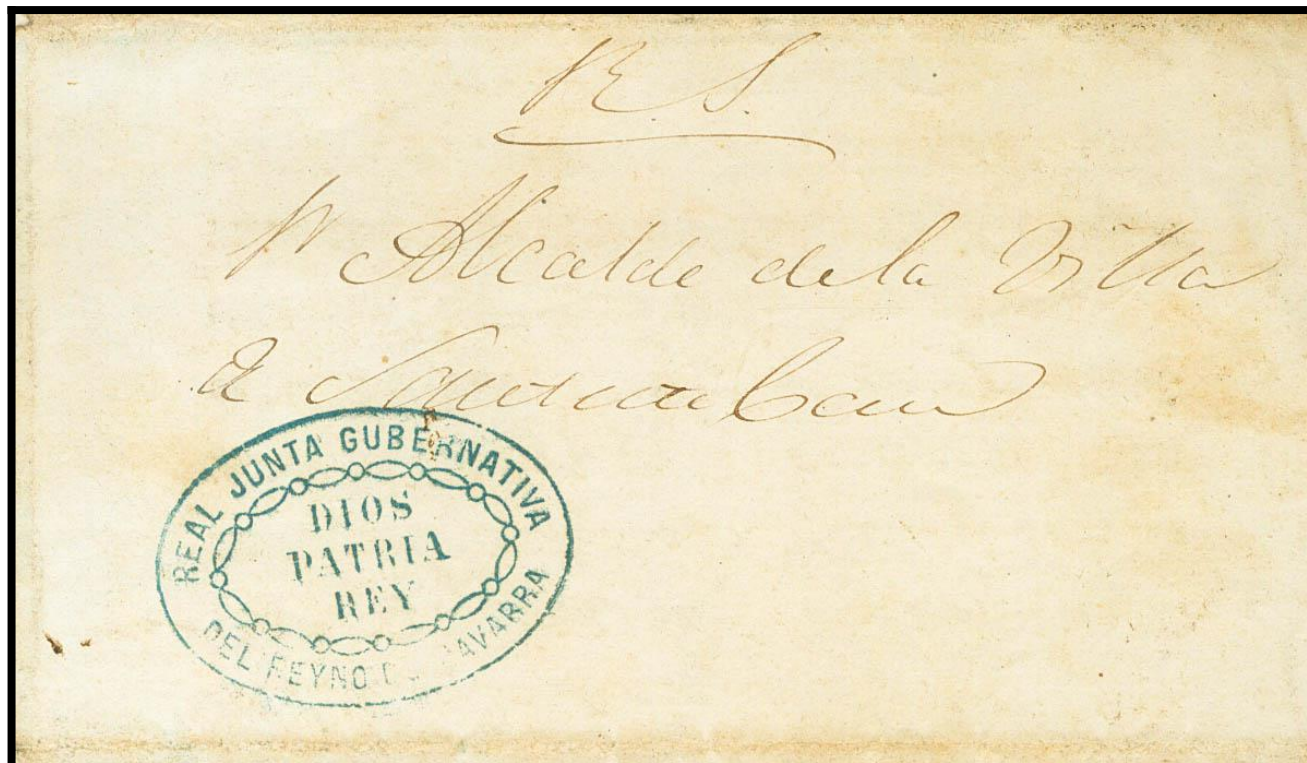 R. S.
Sr Alcalde de la Villa
de Santesteban
REAL JUNTA GUBERNATIVA
DIOS
PATRIA
REY
DEL REYNO DE NAVARRA